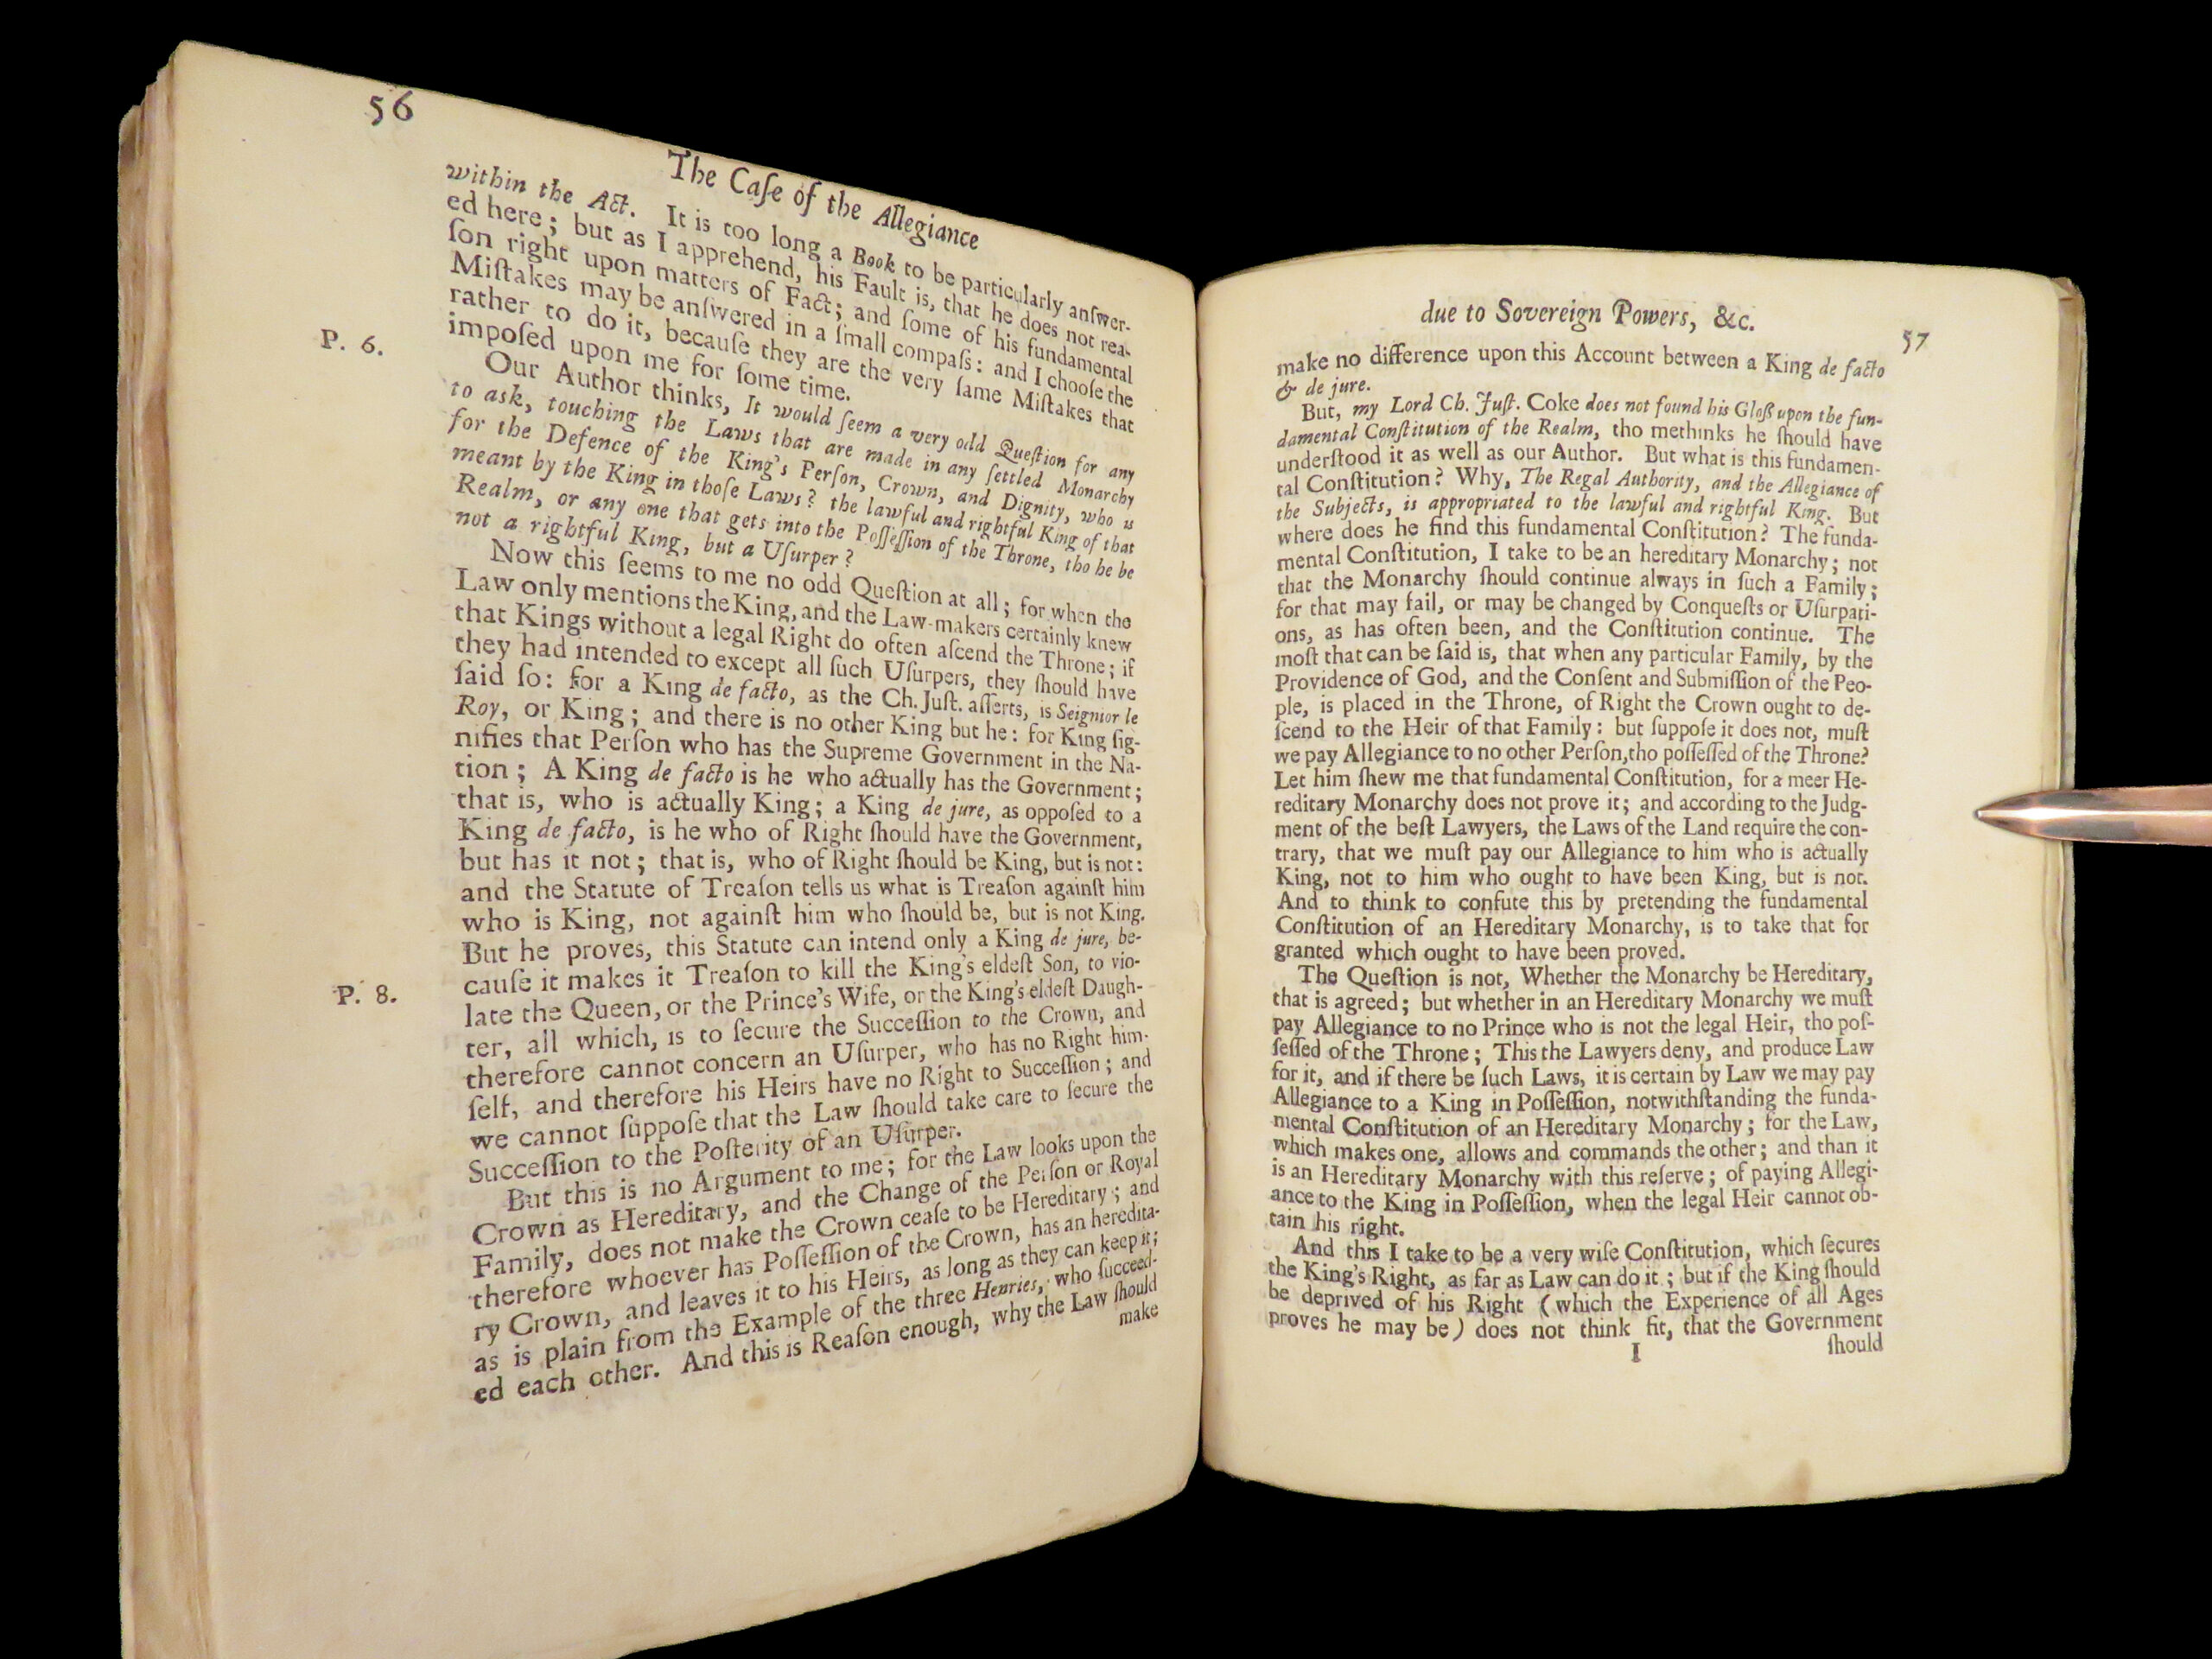 56
The Caſe of the Allegiance
within the Act. It is too long a Book to be particularly anſwer-
ed here; but as I apprehend, his Fault is, that he does not rea-
ſon right upon matters of Fact; and ſome of his fundamental
Miſtakes may be anſwered in a ſmall compaſs: and I chooſe the
rather to do it, becauſe they are the very ſame Miſtakes that
impoſed upon me for ſome time.
P. 6.
Our Author thinks, It would ſeem a very odd Queſtion for any
to ask, touching the Laws that are made in any ſettled Monarchy
for the Defence of the King's Perſon, Crown, and Dignity, who is
meant by the King in thoſe Laws? the lawful and rightful King of that
Realm, or any one that gets into the Poſſeſſion of the Throne, tho he be
not a rightful King, but a Uſurper?
Now this ſeems to me no odd Queſtion at all; for when the
Law only mentions the King, and the Law-makers certainly knew
that Kings without a legal Right do often aſcend the Throne; if
they had intended to except all ſuch Uſurpers, they ſhould have
ſaid ſo: for a King de facto, as the Ch. Juſt. aſſerts, is Seignior le
Roy, or King; and there is no other King but he: for King ſig-
nifies that Perſon who has the Supreme Government in the Na-
tion; A King de facto is he who actually has the Government;
that is, who is actually King; a King de jure, as oppoſed to a
King de facto, is he who of Right ſhould have the Government,
but has it not; that is, who of Right ſhould be King, but is not:
and the Statute of Treaſon tells us what is Treaſon againſt him
who is King, not againſt him who ſhould be, but is not King.
P. 8.
But he proves, this Statute can intend only a King de jure, be-
cauſe it makes it Treaſon to kill the King's eldeſt Son, to vio-
late the Queen, or the Prince's Wife, or the King's eldeſt Daugh-
ter, all which, is to ſecure the Succeſſion to the Crown, and
therefore cannot concern an Uſurper, who has no Right him-
ſelf, and therefore his Heirs have no Right to Succeſſion; and
we cannot ſuppoſe that the Law ſhould take care to ſecure the
Succeſſion to the Poſterity of an Uſurper.
But this is no Argument to me; for the Law looks upon the
Crown as Hereditary, and the Change of the Perſon or Royal
Family, does not make the Crown ceaſe to be Hereditary; and
therefore whoever has Poſſeſſion of the Crown, has an heredita-
ry Crown, and leaves it to his Heirs, as long as they can keep it;
as is plain from the Example of the three Henries, who ſucceed-
ed each other. And this is Reaſon enough, why the Law ſhould
make
due to Sovereign Powers, &c.
57
make no difference upon this Account between a King de facto
& de jure.
But, my Lord Ch. Juſt. Coke does not found his Gloß upon the fun-
damental Conſtitution of the Realm, tho methinks he ſhould have
underſtood it as well as our Author. But what is this fundamen-
tal Conſtitution? Why, The Regal Authority, and the Allegiance of
the Subjects, is appropriated to the lawful and rightful King. But
where does he find this fundamental Conſtitution? The funda-
mental Conſtitution, I take to be an hereditary Monarchy; not
that the Monarchy ſhould continue always in ſuch a Family;
for that may fail, or may be changed by Conqueſts or Uſurpati-
ons, as has often been, and the Conſtitution continue. The
moſt that can be ſaid is, that when any particular Family, by the
Providence of God, and the Conſent and Submiſſion of the Peo-
ple, is placed in the Throne, of Right the Crown ought to de-
ſcend to the Heir of that Family: but ſuppoſe it does not, muſt
we pay Allegiance to no other Perſon, tho poſſeſſed of the Throne?
Let him ſhew me that fundamental Conſtitution, for a meer He-
reditary Monarchy does not prove it; and according to the Judg-
ment of the beſt Lawyers, the Laws of the Land require the con-
trary, that we muſt pay our Allegiance to him who is actually
King, not to him who ought to have been King, but is not.
And to think to confute this by pretending the fundamental
Conſtitution of an Hereditary Monarchy, is to take that for
granted which ought to have been proved.
The Queſtion is not, Whether the Monarchy be Hereditary,
that is agreed; but whether in an Hereditary Monarchy we muſt
pay Allegiance to no Prince who is not the legal Heir, tho poſ-
ſeſſed of the Throne; This the Lawyers deny, and produce Law
for it, and if there be ſuch Laws, it is certain by Law we may pay
Allegiance to a King in Poſſeſſion, notwithſtanding the funda-
mental Conſtitution of an Hereditary Monarchy; for the Law,
which makes one, allows and commands the other; and than it
is an Hereditary Monarchy with this reſerve; of paying Allegi-
ance to the King in Poſſeſſion, when the legal Heir cannot ob-
tain his right.
And this I take to be a very wiſe Conſtitution, which ſecures
the King's Right, as far as Law can do it; but if the King ſhould
be deprived of his Right (which the Experience of all Ages
proves he may be) does not think fit, that the Government
I
ſhould